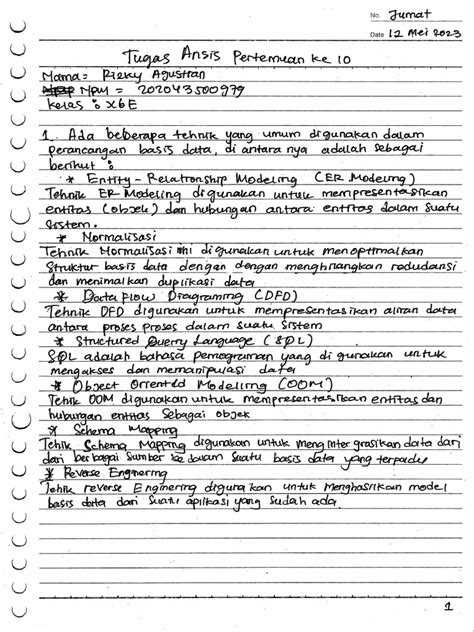 No. Jumat
Date 12 Mei 2023
Tugas Ansis Pertemuan ke 10
Nama = Rizky Agustian
NPM = 202043500979
Kelas : X6E
1. Ada beberapa tehnik yang umum digunakan dalam
perancangan basis data, di antara nya adalah sebagai
berikut :
* Entity - Relationship Modeling (ER Modeling)
Tehnik ER Modeling digunakan untuk mempresentasikan
entitas (objek) dan hubungan antara entitas dalam suatu
sistem.
* Normalisasi
Tehnik Normalisasi ini digunakan untuk menoptimalkan
Struktur basis data dengan dengan menghilangkan redudansi
dan menimalkan duplikasi data
* Data Flow Diagraming (DFD)
Tehnik DFD digunakan untuk mempresentasikan aliran data
antara proses proses dalam suatu sistem
* Structured Query Language (SQL)
SQL adalah bahasa pemograman yang di gunakan untuk
mengakses dan memanipulasi data
* Object Oriented Modeling (OOM)
Tehik OOM digunakan untuk mempresentasikan entitas dan
hubungan entitas Sebagai objek
* Schema Mapping
Tehik Schema Mapping digunakan untuk menginter grasikan data dari
dari berbagai Sumber ke dalam Suatu basis data yang terpadu
* Reverse Enginering
Tehik reverse Enginering digunakan untuk Menghasilkan model
basis data dari Suatu aplikasi yang sudah ada.
1